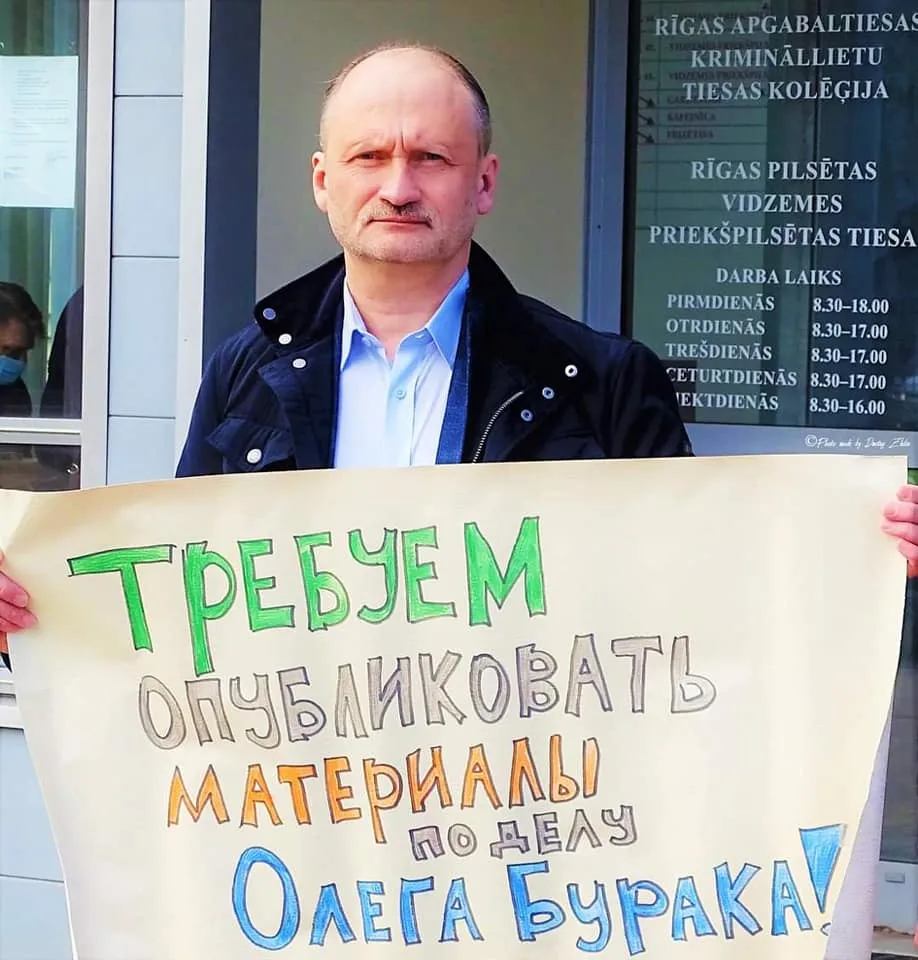 RĪGAS APGABALTIESAS
KRIMINĀLLIETU
TIESAS KOLĒĢIJA
RĪGAS PILSĒTAS
VIDZEMES
PRIEKŠPILSĒTAS TIESA
DARBA LAIKS
PIRMDIENĀS 8.30–18.00
OTRDIENĀS 8.30–17.00
TREŠDIENĀS 8.30–17.00
CETURTDIENĀS 8.30–17.00
IEKTDIENĀS 8.30–16.00
©Photo made by Dmitry
ТРЕБУЕМ
ОПУБЛИКОВАТЬ
МАТЕРИАЛЫ
ПО ДЕЛУ
ОЛЕГА БУРАКА!